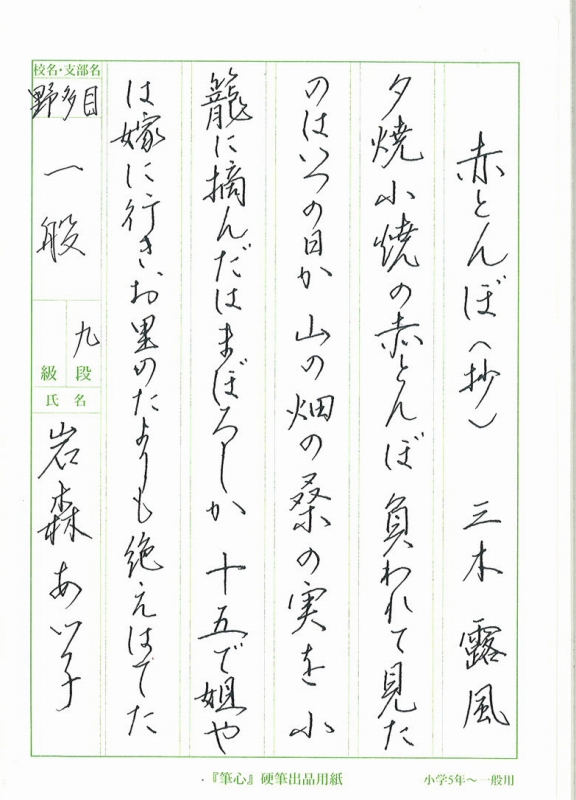 赤とんぼ（抄） 三木 露風
夕焼小焼の赤とんぼ 負われて見た
のはいつの日か 山の畑の桑の実を 小
籠に摘んだはまぼろしか 十五で姐や
は嫁に行き、お里のたよりも絶えはてた
校名・支部名
野多目
一般
九
級 段
氏名
岩森あい子
・『筆心』硬筆出品用紙
小学5年〜一般用